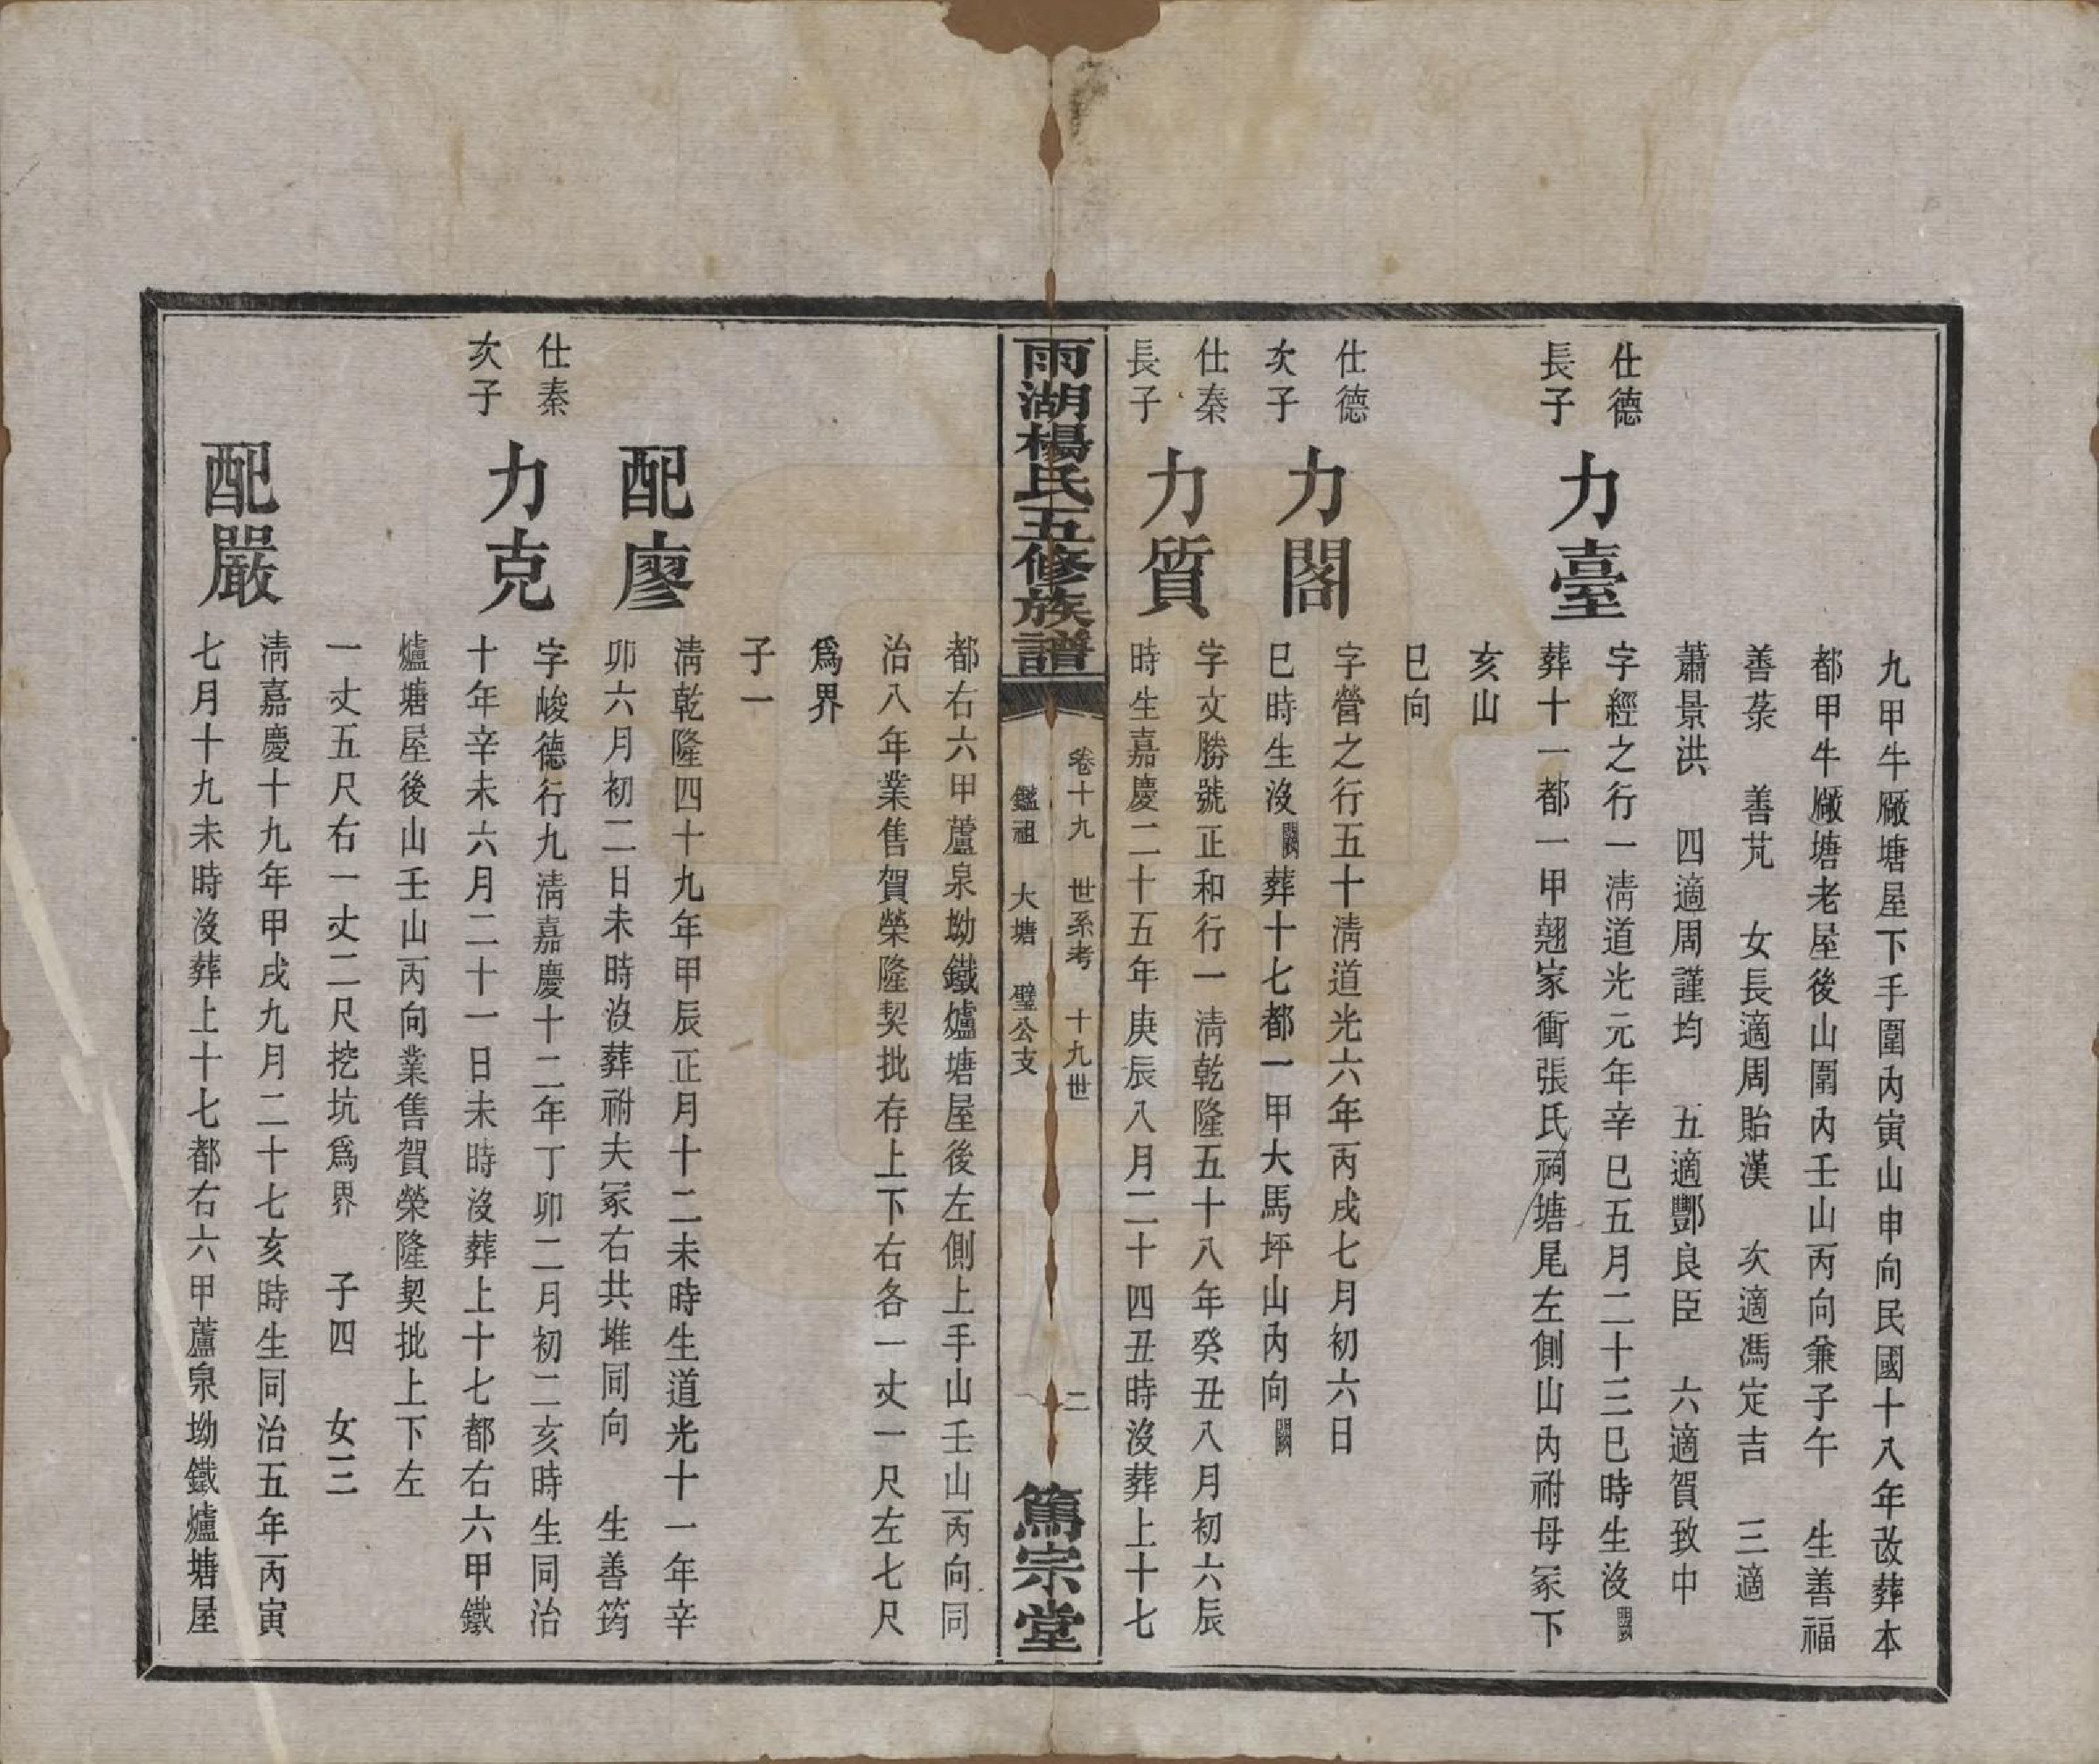 九甲牛廠塘屋下手圍內寅山申向民國十八年改葬本
都甲牛廠塘老屋後山圍內壬山丙向兼子午　生善福
善菉　善芃　女長適周貽漢　次適馮定吉　三適
蕭景洪　四適周謹均　五適酆良臣　六適賀致中
仕德
長子
力臺
字經之行一清道光元年辛巳五月二十三巳時生沒闕
葬十一都一甲趐家衝張氏祠塘尾左側山內祔母冢下
亥山
巳向
仕德
次子
力閣
字營之行五十清道光六年丙戌七月初六日
巳時生沒闕葬十七都一甲大馬坪山內向闕
仕秦
長子
力質
字文勝號正和行一清乾隆五十八年癸丑八月初六辰
時生嘉慶二十五年庚辰八月二十四丑時沒葬上十七
雨湖楊氏五修族譜
卷十九　世系考　十九世　二
鑑祖　大塘　璧公支
篤宗堂
都右六甲蘆泉坳鐵爐塘屋後左側上手山壬山丙向同
治八年業售賀榮隆契批存上下右各一丈一尺左七尺
爲界
子一
配廖
清乾隆四十九年甲辰正月十二未時生道光十一年辛
卯六月初二日未時沒葬祔夫冢右共堆同向　生善筠
仕秦
次子
力克
字峻德行九清嘉慶十二年丁卯二月初二亥時生同治
十年辛未六月二十一日未時沒葬上十七都右六甲鐵
爐塘屋後山壬山丙向業售賀榮隆契批上下左
一丈五尺右一丈二尺挖坑爲界　子四　女三
配嚴
清嘉慶十九年甲戌九月二十七亥時生同治五年丙寅
七月十九未時沒葬上十七都右六甲蘆泉坳鐵爐塘屋